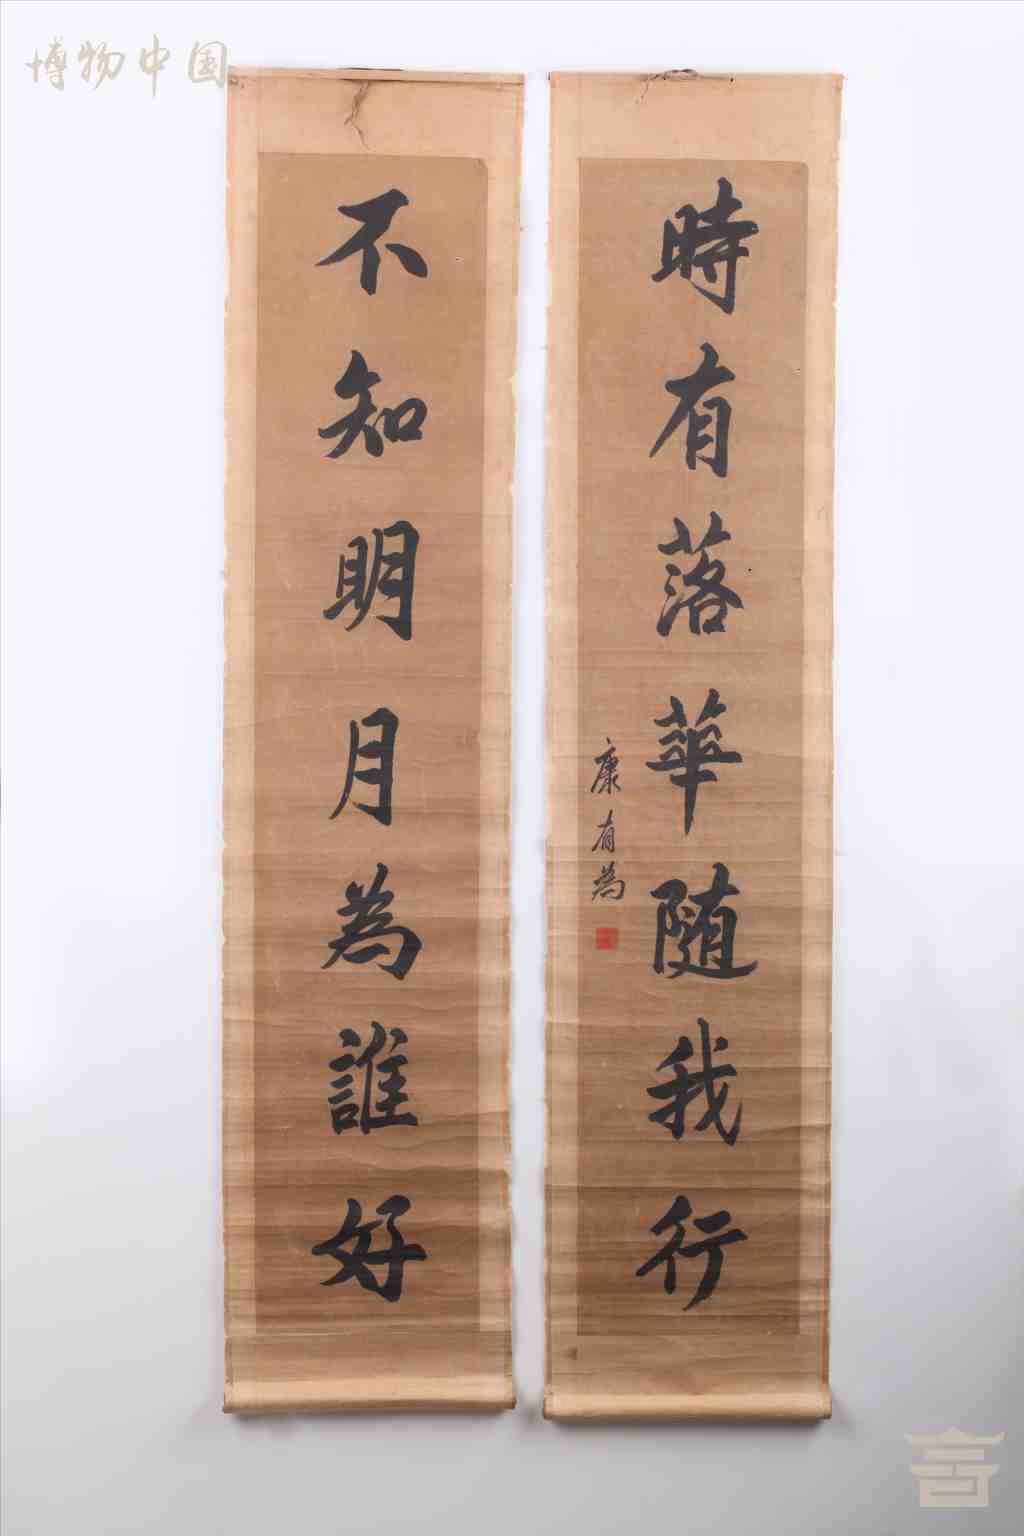 博物中国
時有落華隨我行
康有為
不知明月為誰好